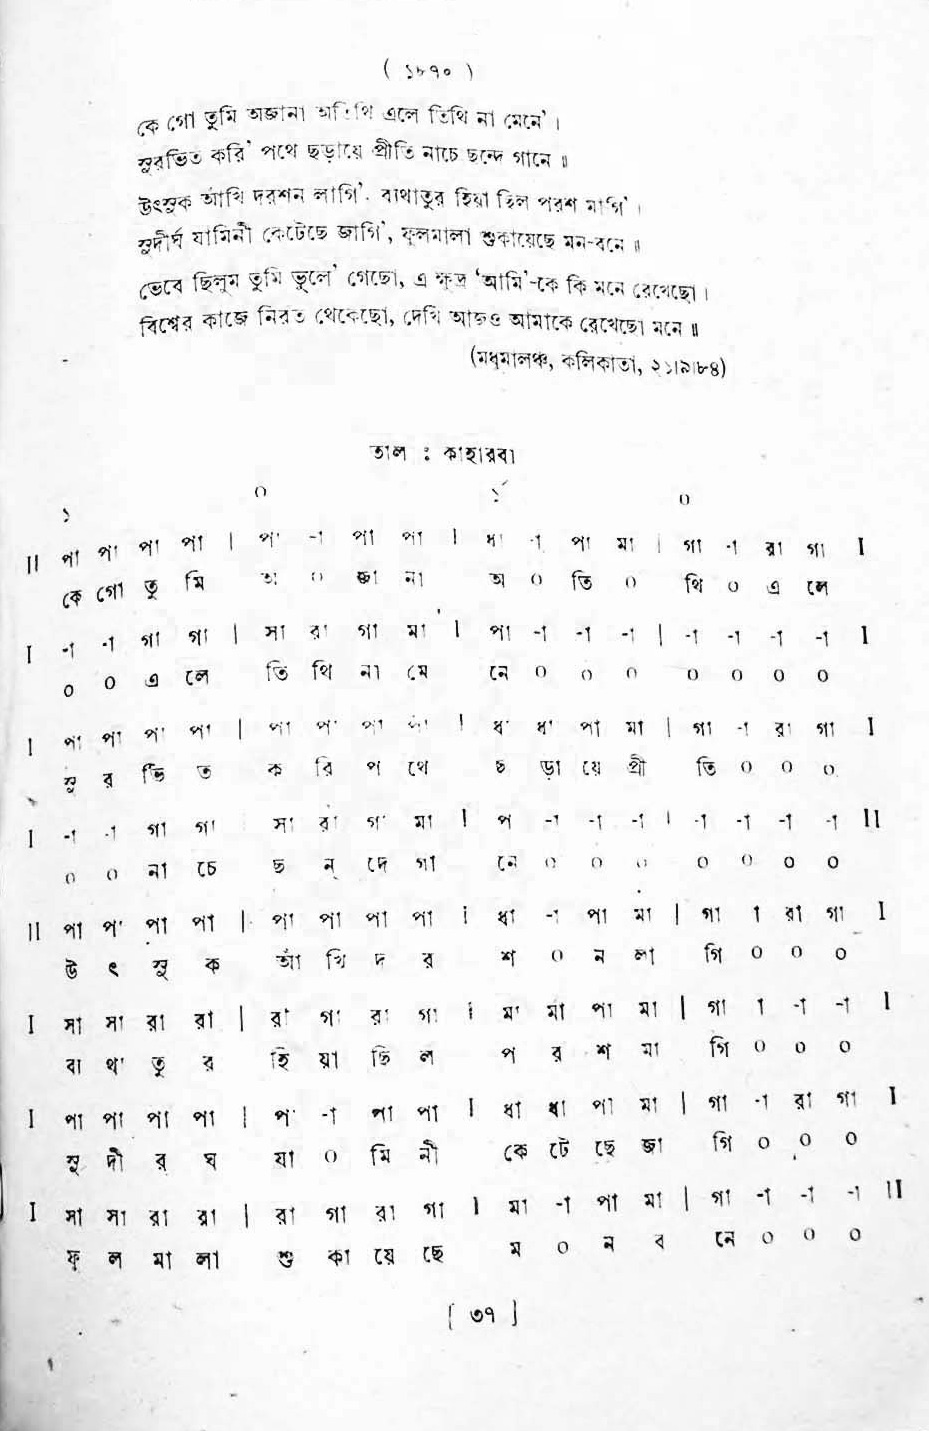 ( ১৮৭০ )
কে গো তুমি অজানা অতিথি এলে তিথি না মেনে' ।
সুরভিত করি' পথে ছড়ায়ে প্রীতি নাচে ছন্দে গানে ॥
উৎসুক আঁখি দরশন লাগি'. ব্যথাতুর হিয়া ছিল পরশ মাগি' ।
সুদীর্ঘ যামিনী কেটেছে জাগি', ফুলমালা শুকায়েছে মন-বনে ॥
ভেবে ছিলুম তুমি ভুলে' গেছো, এ ক্ষুদ্র 'আমি'-কে কি মনে রেখেছো ।
বিশ্বের কাজে নিরত থেকেছো, দেখি আজও আমাকে রেখেছো মনে ॥
(মধুমালঞ্চ, কলিকাতা, ২১।৯।৮৪)
তাল : কাহারবা
১ ০ ১́ ০
II পা পা পা পা | পা -া পা পা I ধা -া পা মা | গা -া রা গা I
কে গো তু মি অ ০ জা না অ ০ তি ০ থি ০ এ লে
I -া -া গা গা | সা রা গা মা I পা -া -া -া | -া -া -া -া I
০ ০ এ লে তি থি না মে নে ০ ০ ০ ০ ০ ০ ০
I পা পা পা পা | পা পা পা পা I ধা ধা পা মা | গা -া রা গা I
সু র ভি ত ক রি প থে ছ ড়া য়ে প্রী তি ০ ০ ০
I -া -া গা গা সা রা গা মা I প -া -া -া । -া -া -া -া II
০ ০ না চে ছ ন্ দে গা নে ০ ০ ০ ০ ০ ০ ০
II পা পা পা পা | পা পা পা পা I ধা -া পা মা | গা া রা গা I
উ ৎ সু ক আঁ খি দ র শ ০ ন লা গি ০ ০ ০
I সা সা রা রা | রা গা রা গা I মা মা পা মা | গা া -া -া I
ব্য থা তু র হি য়া ছি ল প র শ মা গি ০ ০ ০
I পা পা পা পা | পা -া পা পা I ধা ধা পা মা | গা -া রা গা I
সু দী র্ ঘ যা ০ মি নী কে টে ছে জা গি ০ ০ ০
I সা সা রা রা | রা গা রা গা I মা -া পা মা | গা -া -া -া II
ফু ল মা লা শু কা য়ে ছে ম ০ ন ব নে ০ ০ ০
[ ৩৭ ]